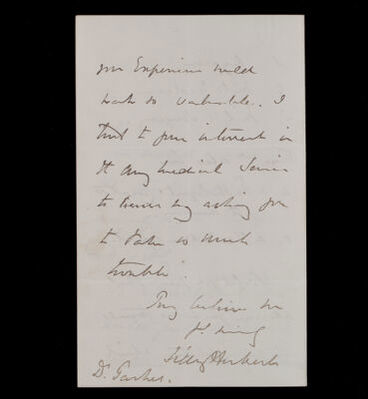 your Experience would
make so valuable. I
trust to your interest in
the Army Medical Service
to excuse my asking you
to take so much
trouble.
Pray believe me
yrs truly
Sidney Herbert
Dr. Parkes.